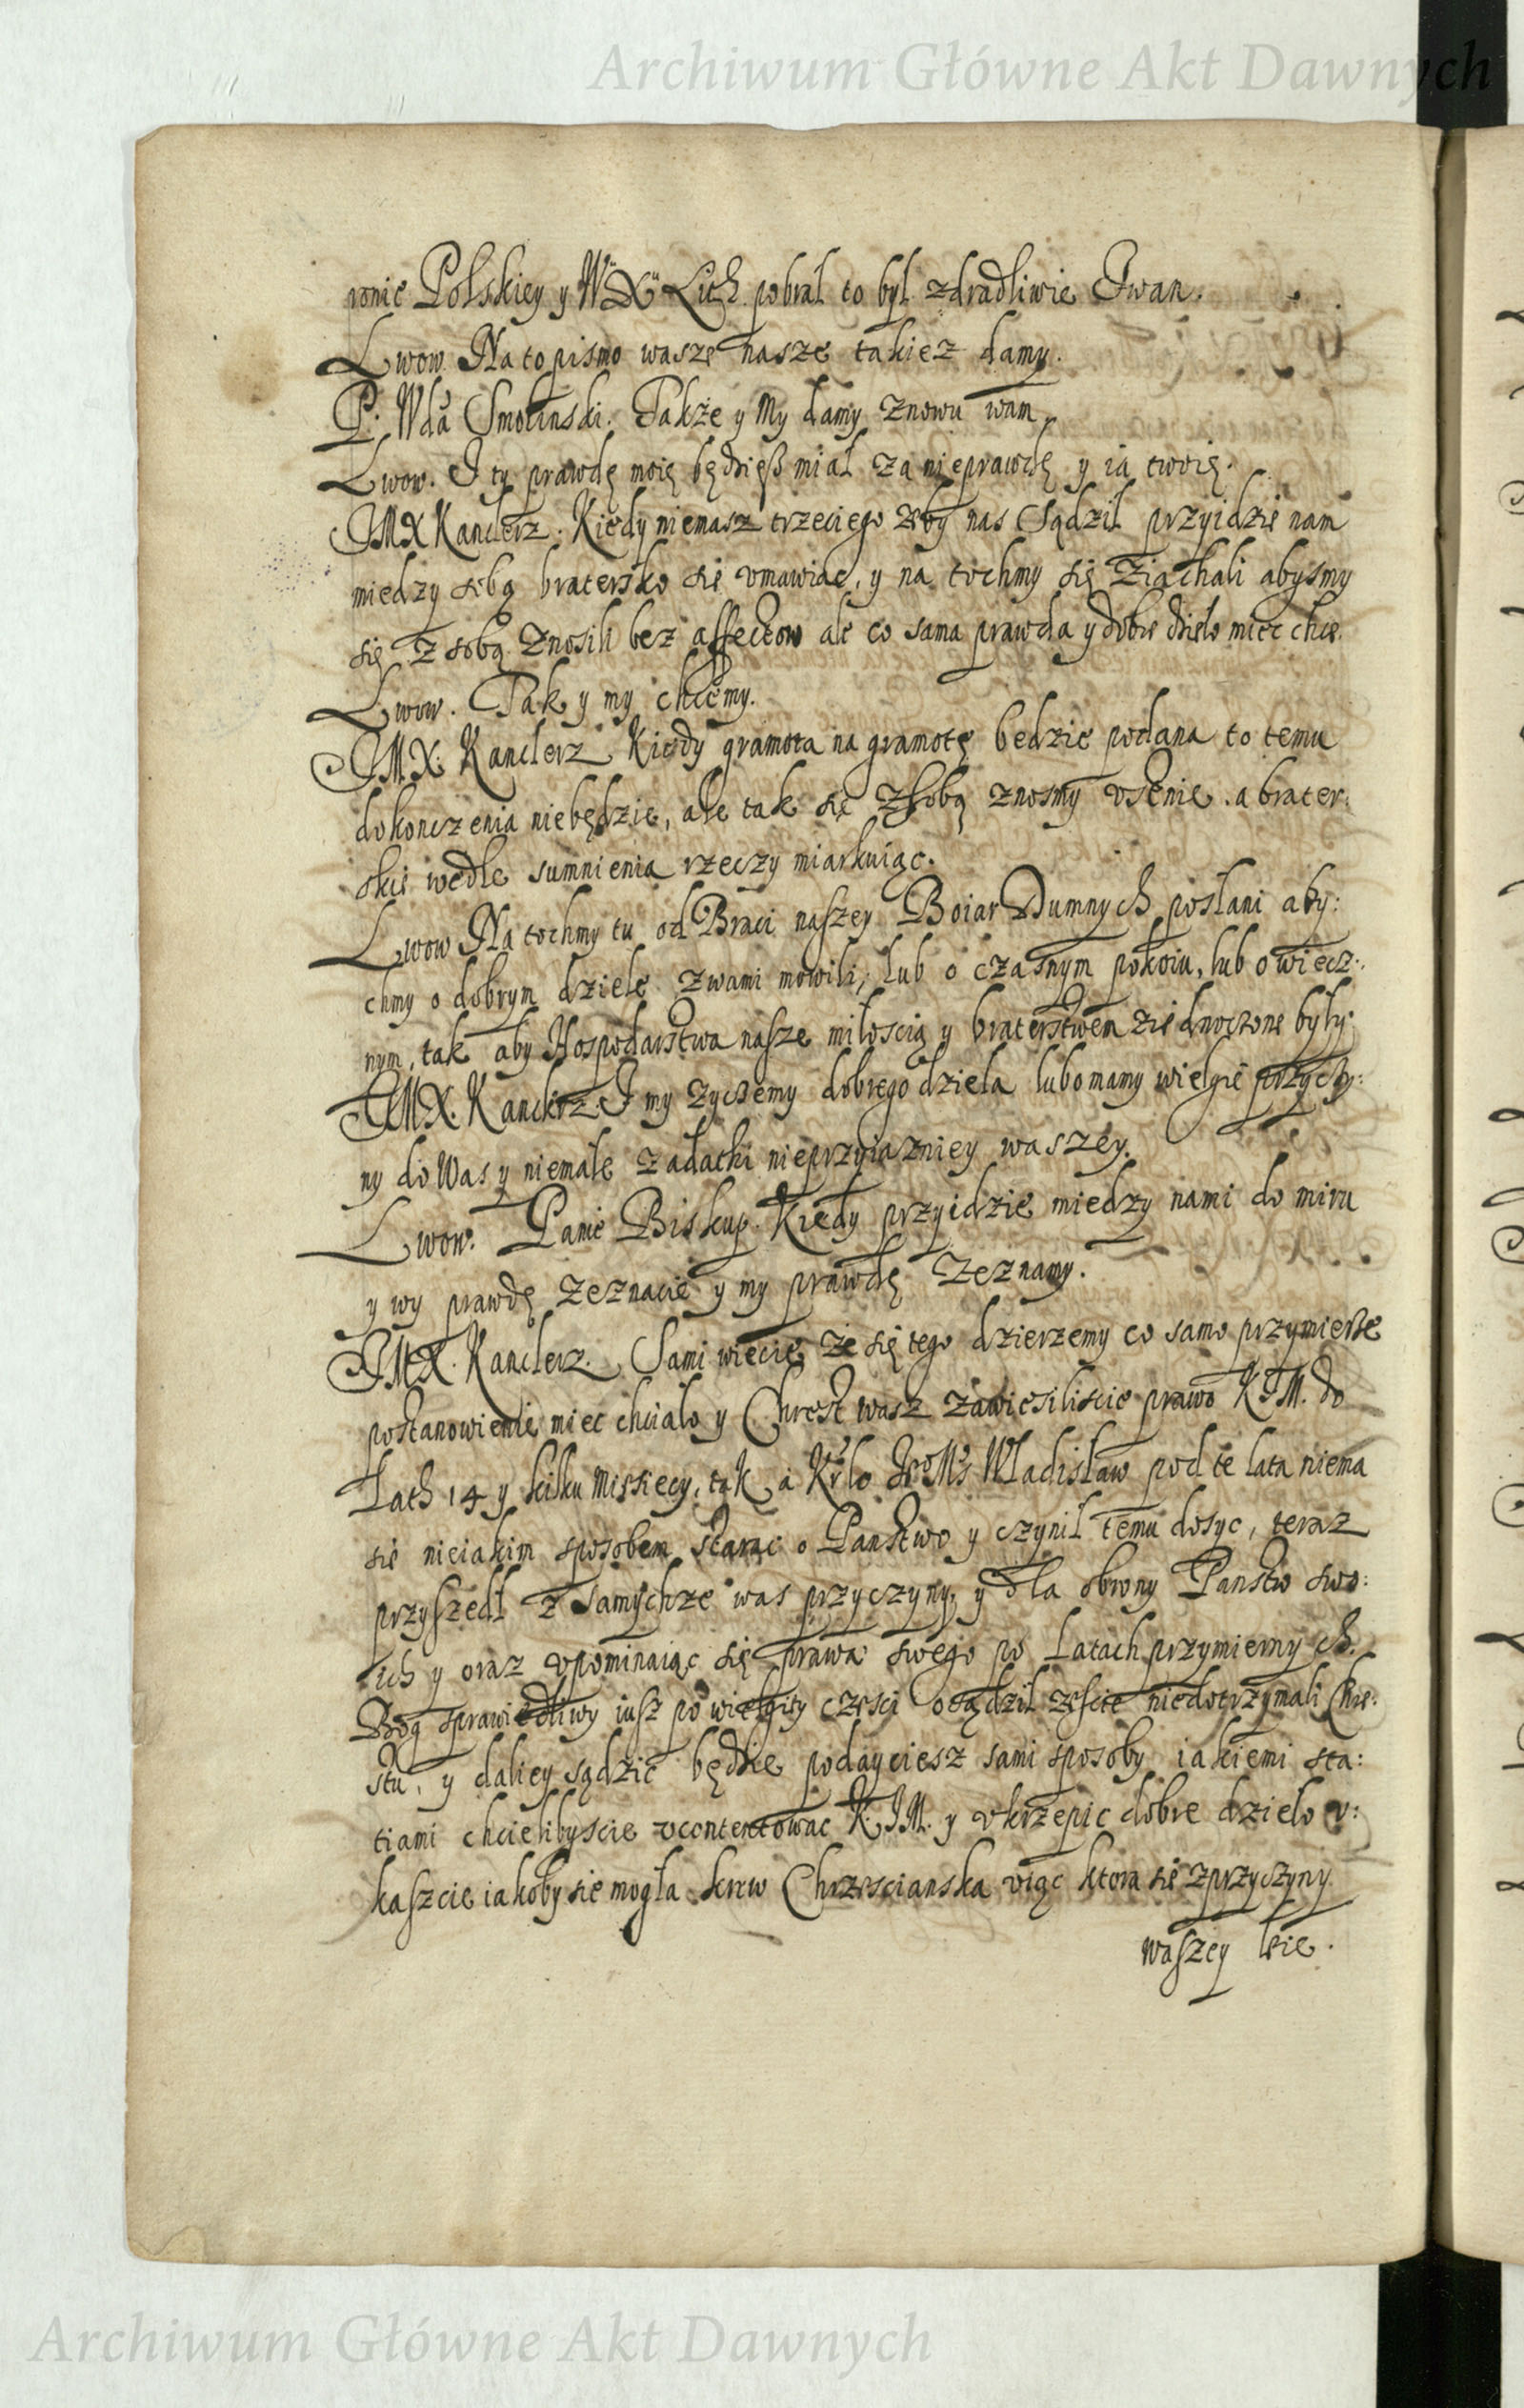 Archiwum Główne Akt Dawnych
ronie Polskiey y W° X° Lith. pobrał to był zdradliwie Iwan.
Lwow. Na to pismo wasze nasze takiez damy.
P. Wda Smolinski. Takze y My damy znowu wam.
Lwow. I ty prawdę moię będzieß miał za nieprawdę y ia twoię.
IMX Kanclerz. Kiedy niemasz trzeciego zeby nas sądził przyidzie nam
miedzy sobą bratersko się vmawiac, y na tochmy się ziachali abysmy
się z sobą znosili bez affectow ale co sama prawda y dobre dzieło miec chce.
Lwow. Tak y my chcemy.
IMX. Kanclerz Kiedy gramota na gramotę bedzie podana to temu
dokonczenia niebędzie, ale tak się z sobą znosmy vstnie. a brater:
skie wedle sumnienia rzeczy miarkuiąc.
Lwow Na tochmy tu od Braci naszey Boiar Dumnych posłani aby:
chmy o dobrym dziele z wami mowili, lub o czasnym pokoiu, lub o wiecz:
nym, tak aby Hospodarstwa nasze miłoscią y braterstwem ziednoczone były.
IMX. Kanclerz I my zyczemy dobrego dzieła lubo mamy wielgie przyczy:
ny do Was y niemałe zadatki nieprzyiazniey waszey.
Lwow. Panie Biskup. Kiedy przyidzie miedzy nami do miru
y wy prawdę zeznacie y my prawdę zeznamy.
IMX. Kanclerz. Sami wiecie ze się tego dzierzemy co samo przymierze
postanowienie miec chciało y Chrest wasz zawiesiliscie prawo K I M. do
Lath 14 y kilku Miesiecy, tak a Krlo Io Ms Wladisław pod te lata niema
się nieiakim sposobem starac o Panstwo y czynił temu dosyc, teraz
przyszedł z samychze was przyczyny, y dla obrony Panstw swo:
ich y oraz vpominaiąc się prawa swego po Latach przymiernych.
Bog sprawiedliwy iusz po wielgiey czesci osądził zescie niedotrzymali Chre:
stu, y daliey sądzic będzie podayciesz sami sposoby iakiemi sta:
tiami chcielibyscie vcontentowac K. I M. y vkrzepic dobre dzieło v:
kaszcie iakoby się mogła krew Chrzescianska viąc ktora się z przyczyny
waszey leie.
Archiwum Główne Akt Dawnych